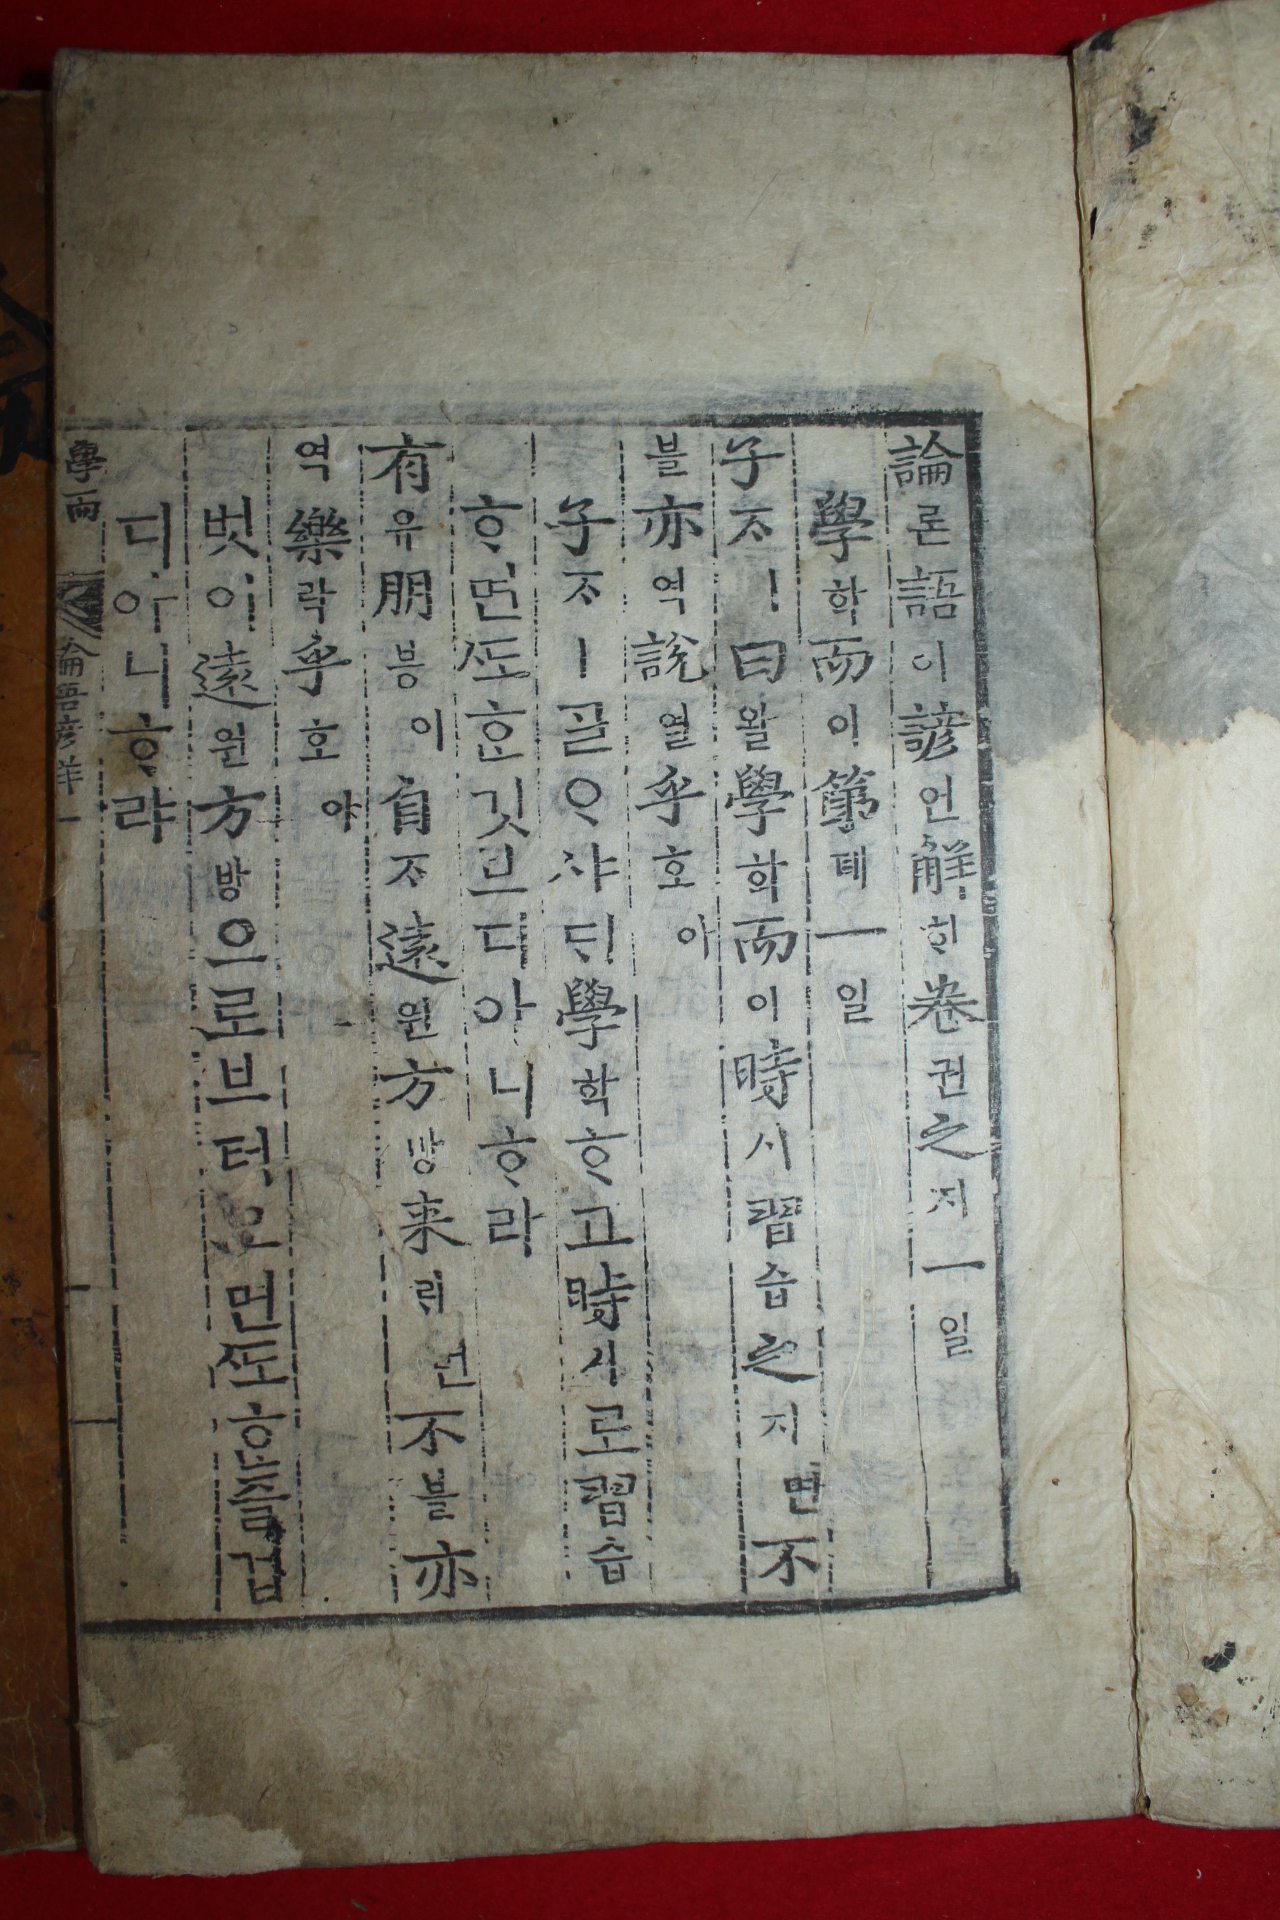 論론語어諺언解ᄒᆡ卷권之지一일
學학而이第뎨一일
子ᄌᆞㅣ曰왈學학而이時시習습之지면不
블亦역說열乎호아
子ᄌᆞㅣᄀᆞᆯᄋᆞ샤ᄃᆡ學학ᄒᆞ고時시로習습
ᄒᆞ면ᄯᅩᄒᆞᆫ깃브디아니ᄒᆞ랴
有유朋븡이自ᄌᆞ遠원方방来ᄅᆡ면不블亦
역樂락乎호아
벗이遠원方방으로브터오면ᄯᅩᄒᆞᆫ즐겁
디아니ᄒᆞ랴
學而 論語諺解一